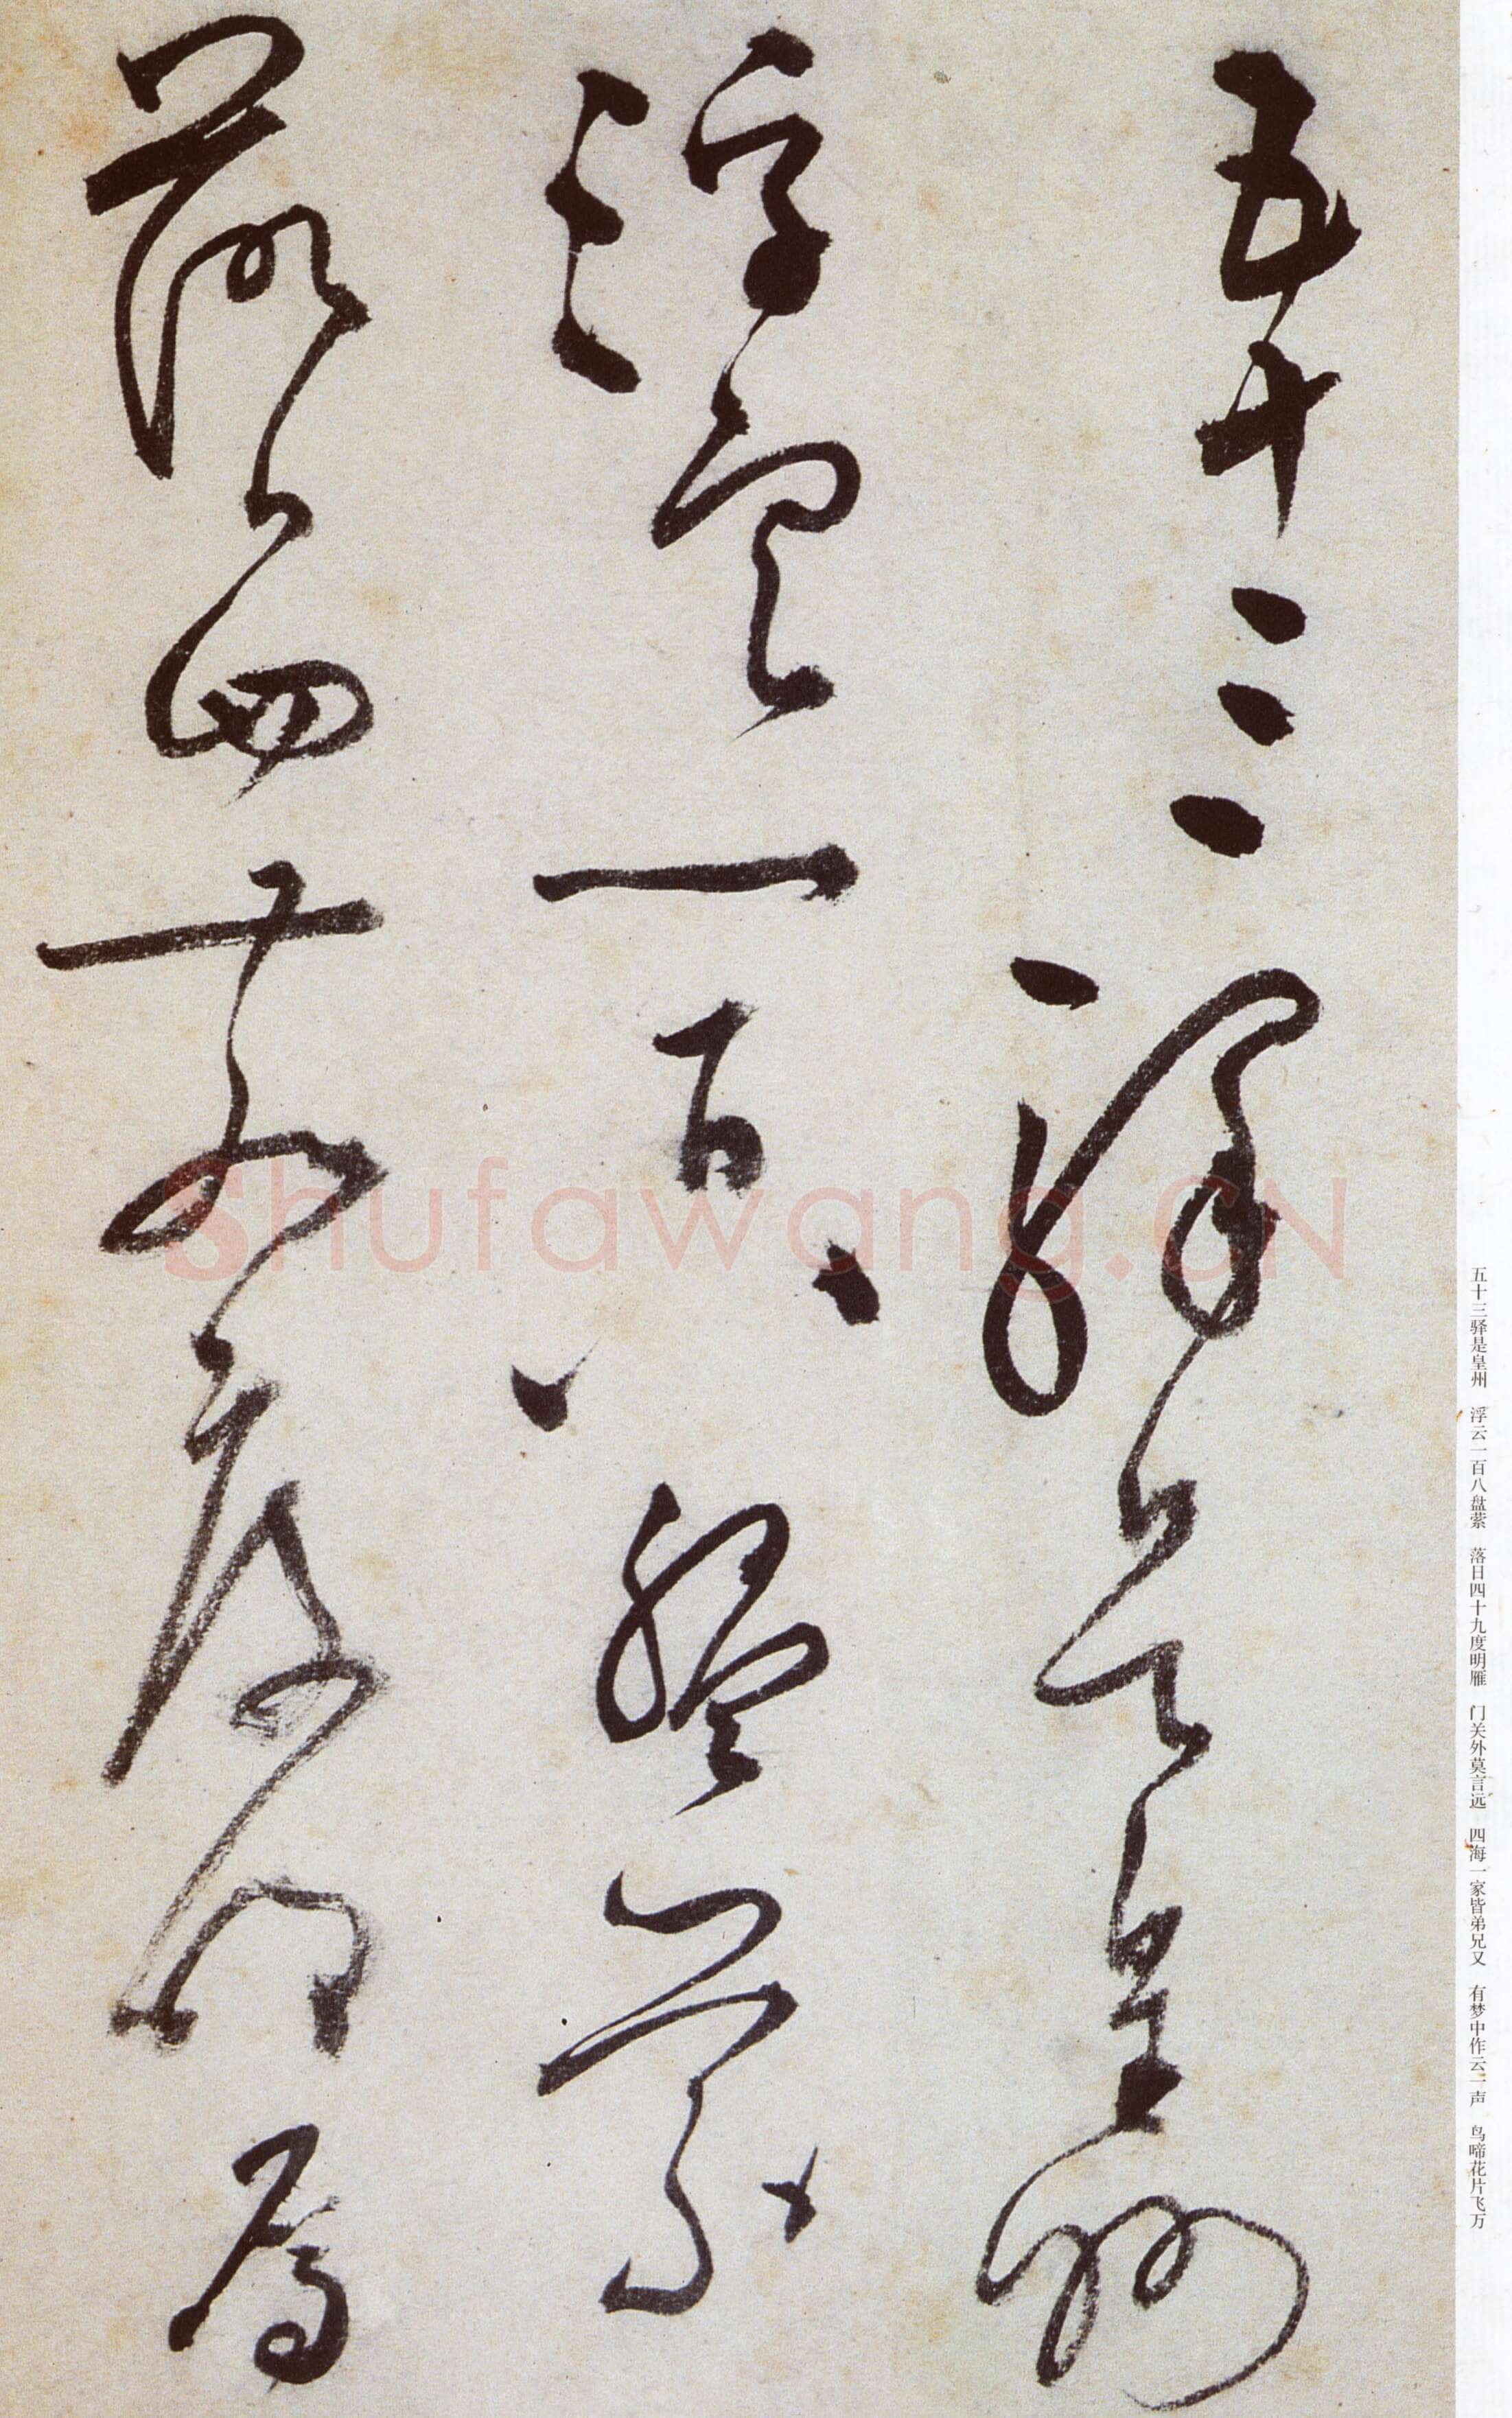 五十三驛是皇州
浮雲一百八盤縈
落日四十九度明鴈
五十三驿是皇州 浮云一百八盘萦 落日四十九度明雁 门关外莫言远 四海一家皆弟兄又 有梦中作云一声 鸟啼花片飞万
Shufawang.CN